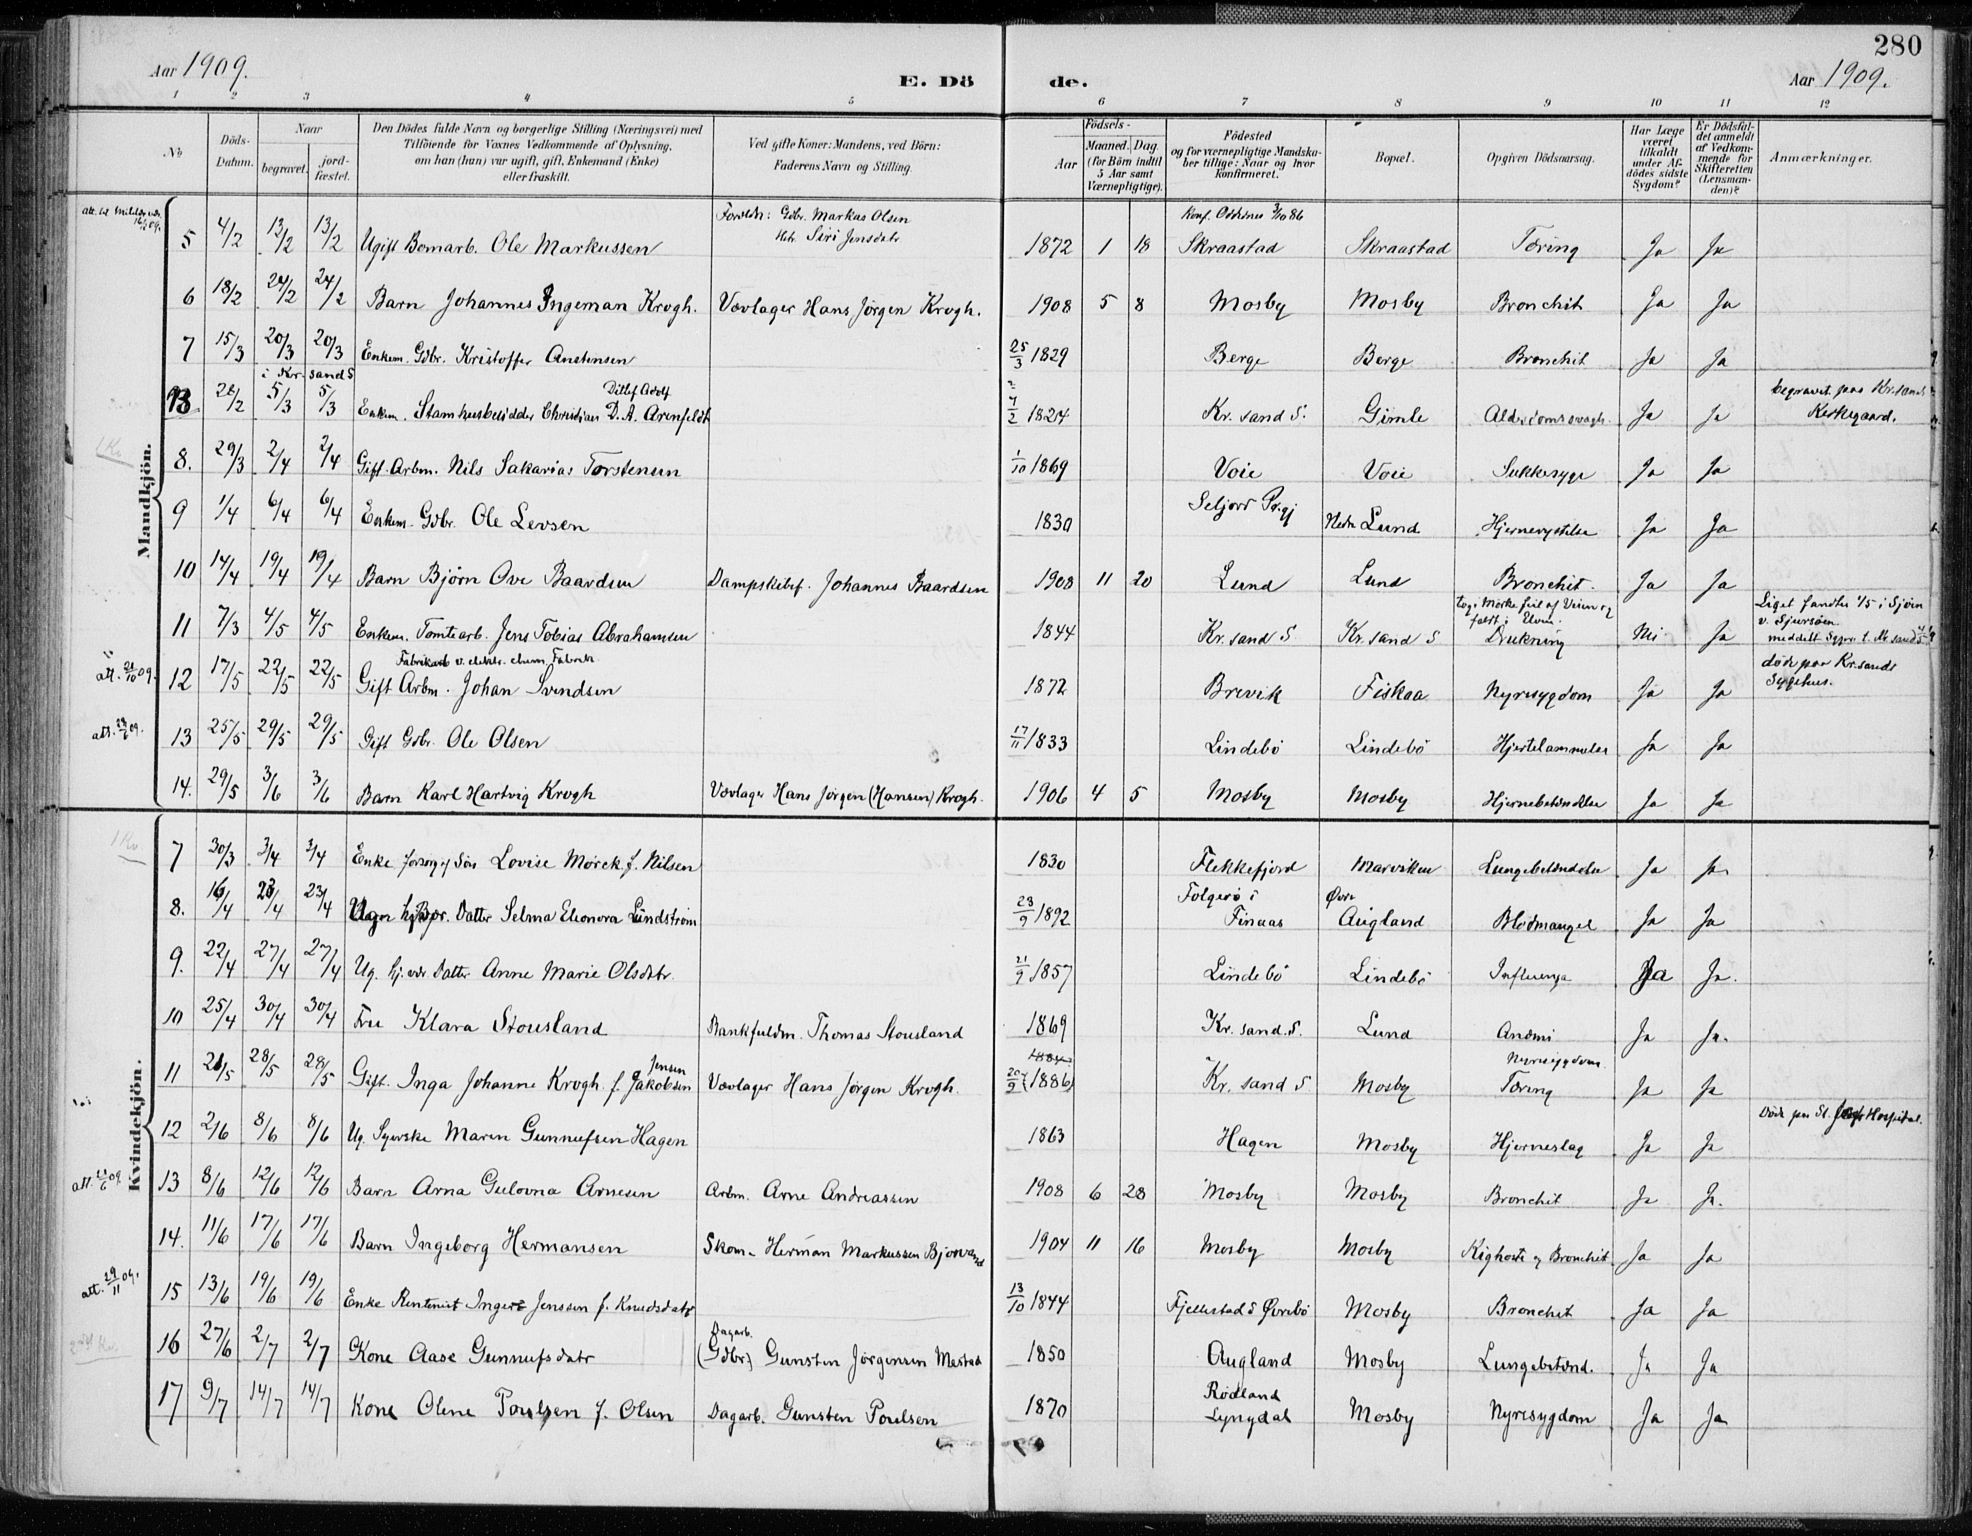 280
Aar 1909.
E. Dö de.
Aar 1909.
1 2 3 4 5 6 7 8 9 10 11 12
No
Döds-Datum.
Naar begravet. jord-fæstet.
Den Dödes fulde Navn og borgerlige Stilling (Næringsvei) med Tilföiende for Voxnes Vedkommende af Oplysning, om han (hun) var ugift, gift, Enkemand (Enke) eller fraskilt.
Ved gifte Koner: Mandens, ved Börn: Faderens Navn og Stilling.
Födsels- Aar Maaned. Dag (for Börn indtil 5 Aar samt Værnepligtige).
Födested og for værnepligtige Mandskaber tillige: Naar og hvor konfirmeret.
Bopæl.
Opgiven Dödsaarsag.
Har Læge været tilkaldt under Afdödes sidste Sygdom?
Er Dödsfaldet anmeldt af Vedkommende for Skifteretten (Lensmanden)?
Anmærkninger.
Mandkjön.
5 4/2 13/2 13/2 Ugift Bomarb. Ole Markussen Foreldr: Gdbr. Markus Olsen Siri Jensdatr 1872 1 18 Konf. Oddernes 3/10 86 Skraastad Skraastad Tæring Ja Ja
6 18/2 24/2 24/2 Barn Johannes Ingeman Krogh. Vævlager Hans Jørgen Krogh. 1908 5 8 Mosby Mosby Bronchit Ja Ja
7 15/3 20/3 20/3 Enkem. Gdbr. Kristoffer Anstensen 25/3 1829 Berge Berge Bronchit Ja Ja
28/2 i Kr.sand S 5/3 5/3 Enkem. Stamhusbesidder Christian Ditlef Adolf D. A. Arenfeldt 7/2 1824 Kr.sand S. Gimle Alderdomssvagh. Ja Ja begravet paa Kr.sands Kirkegaard.
8. 29/3 2/4 2/4 Gift Arbm. Nils Sakarias Torstensen 1/10 1869 Voie Voie Sukkersyge Ja Ja
9 1/4 6/4 6/4 Enkem. Gdbr. Ole Levsen 1830 Seljord Prgj Nedr Lund Hjernerystelse Ja Ja
10 14/4 19/4 19/4 Barn Bjørn Ove Baardsen Dampskibsf. Johannes Baardsen 1908 11 20 Lund Lund Bronchit. Ja Ja
11 7/3 4/5 4/5 Enkem. Tomtearb. Jens Tobias Abrahamsen 1844 Kr.sand S Kr.sand S tog i Mørke feil af Veien og faldt i Elven. Drukning Nei Ja Liget fandtes 1/5 i Sjøen v. Sjursøen
att. 21/10 09. 12 17/5 22/5 22/5 Fabrikarb v. elektr. chem. Fabrik Gift Arbm. Johan Svendsen 1872 Brevik Fiskaa Nyresygdom Ja Ja døde paa Kr.sands Sygehus.
att. 28/6 09. 13 25/5 29/5 29/5 Gift Gdbr. Ole Olsen 17/11 1833 Lindebö Lindebö Hjertelammelse Ja Ja
14. 29/5 3/6 3/6 Barn Karl Hartvig Krogh Vævlager Hans Jørgen (Hansen) Krogh. 1906 4 5 Mosby Mosby Hjernebetændelse Ja Ja
Kvindekjön.
7 30/3 3/4 3/4 Enke forsørg. af Søn Lovise Mørck f. Nilsen 1830 Flekkefjord Marviken Lungebetændelse Ja Ja
8. 16/4 23/4 23/4 Datter Selma Eleonora Lindstrøm 23/9 1892 Folgerö i Finaas Øvre Augland Blodmangel Ja Ja
9. 22/4 27/4 27/4 Ug. hj.vær. Datter Anne Marie Olsdatr. 21/9 1857 Lindebö Lindebö Influenza Ja Ja.
10 25/4 30/4 30/4 Fru Klara Stousland Bankfuldm. Thomas Stousland 1869 Kr.sand.S. Lund Anæmi Ja Ja.
11 21/5 28/5 28/5 Gift. Inga Johanne Krogh. f. Jensen Jakobsen Vævlager Hans Jørgen Krogh. 1884 20/9 (1886) Kr.sand S Mosby Nyresygdom. Tæring Ja Ja
12 2/6 8/6 8/6 Ug. Syerske Maren Gunnufsen Hagen 1863 Hagen Mosby Hjerneslag Ja Ja Døde paa St. Josefs Hospital.
13 8/6 12/6 12/6 Barn Arna Gulovna Arnesen Arbm. Arne Andreassen 1908 6 28 Mosby Mosby Bronchit Ja Ja.
14. 11/6 17/6 17/6 Barn Ingeborg Hermansen Skom. Herman Markussen Bjorvand 1904 11 16 Mosby Mosby Kighoste og Bronchit Ja Ja
att. 29/11 09. 15 13/6 19/6 19/6 Enke Rentenist Inger Jenssen f. Knudsdatr 13/10 1844 Fjellestad i Øvrebö Mosby Bronchit Ja Ja
16 27/6 2/7 2/7 Kone Aase Gunnufsdatr Dagarb. (Gdbr) Gunsten Jørgensen Mestad 1850 Augland Mosby Lungebetænd. Ja Ja
17 9/7 14/7 14/7 Kone Olene Poulsen f. Olsen Dagarb. Gunsten Poulsen 1870 Rødland Lyngdal Mosby Nyresygdom Ja Ja